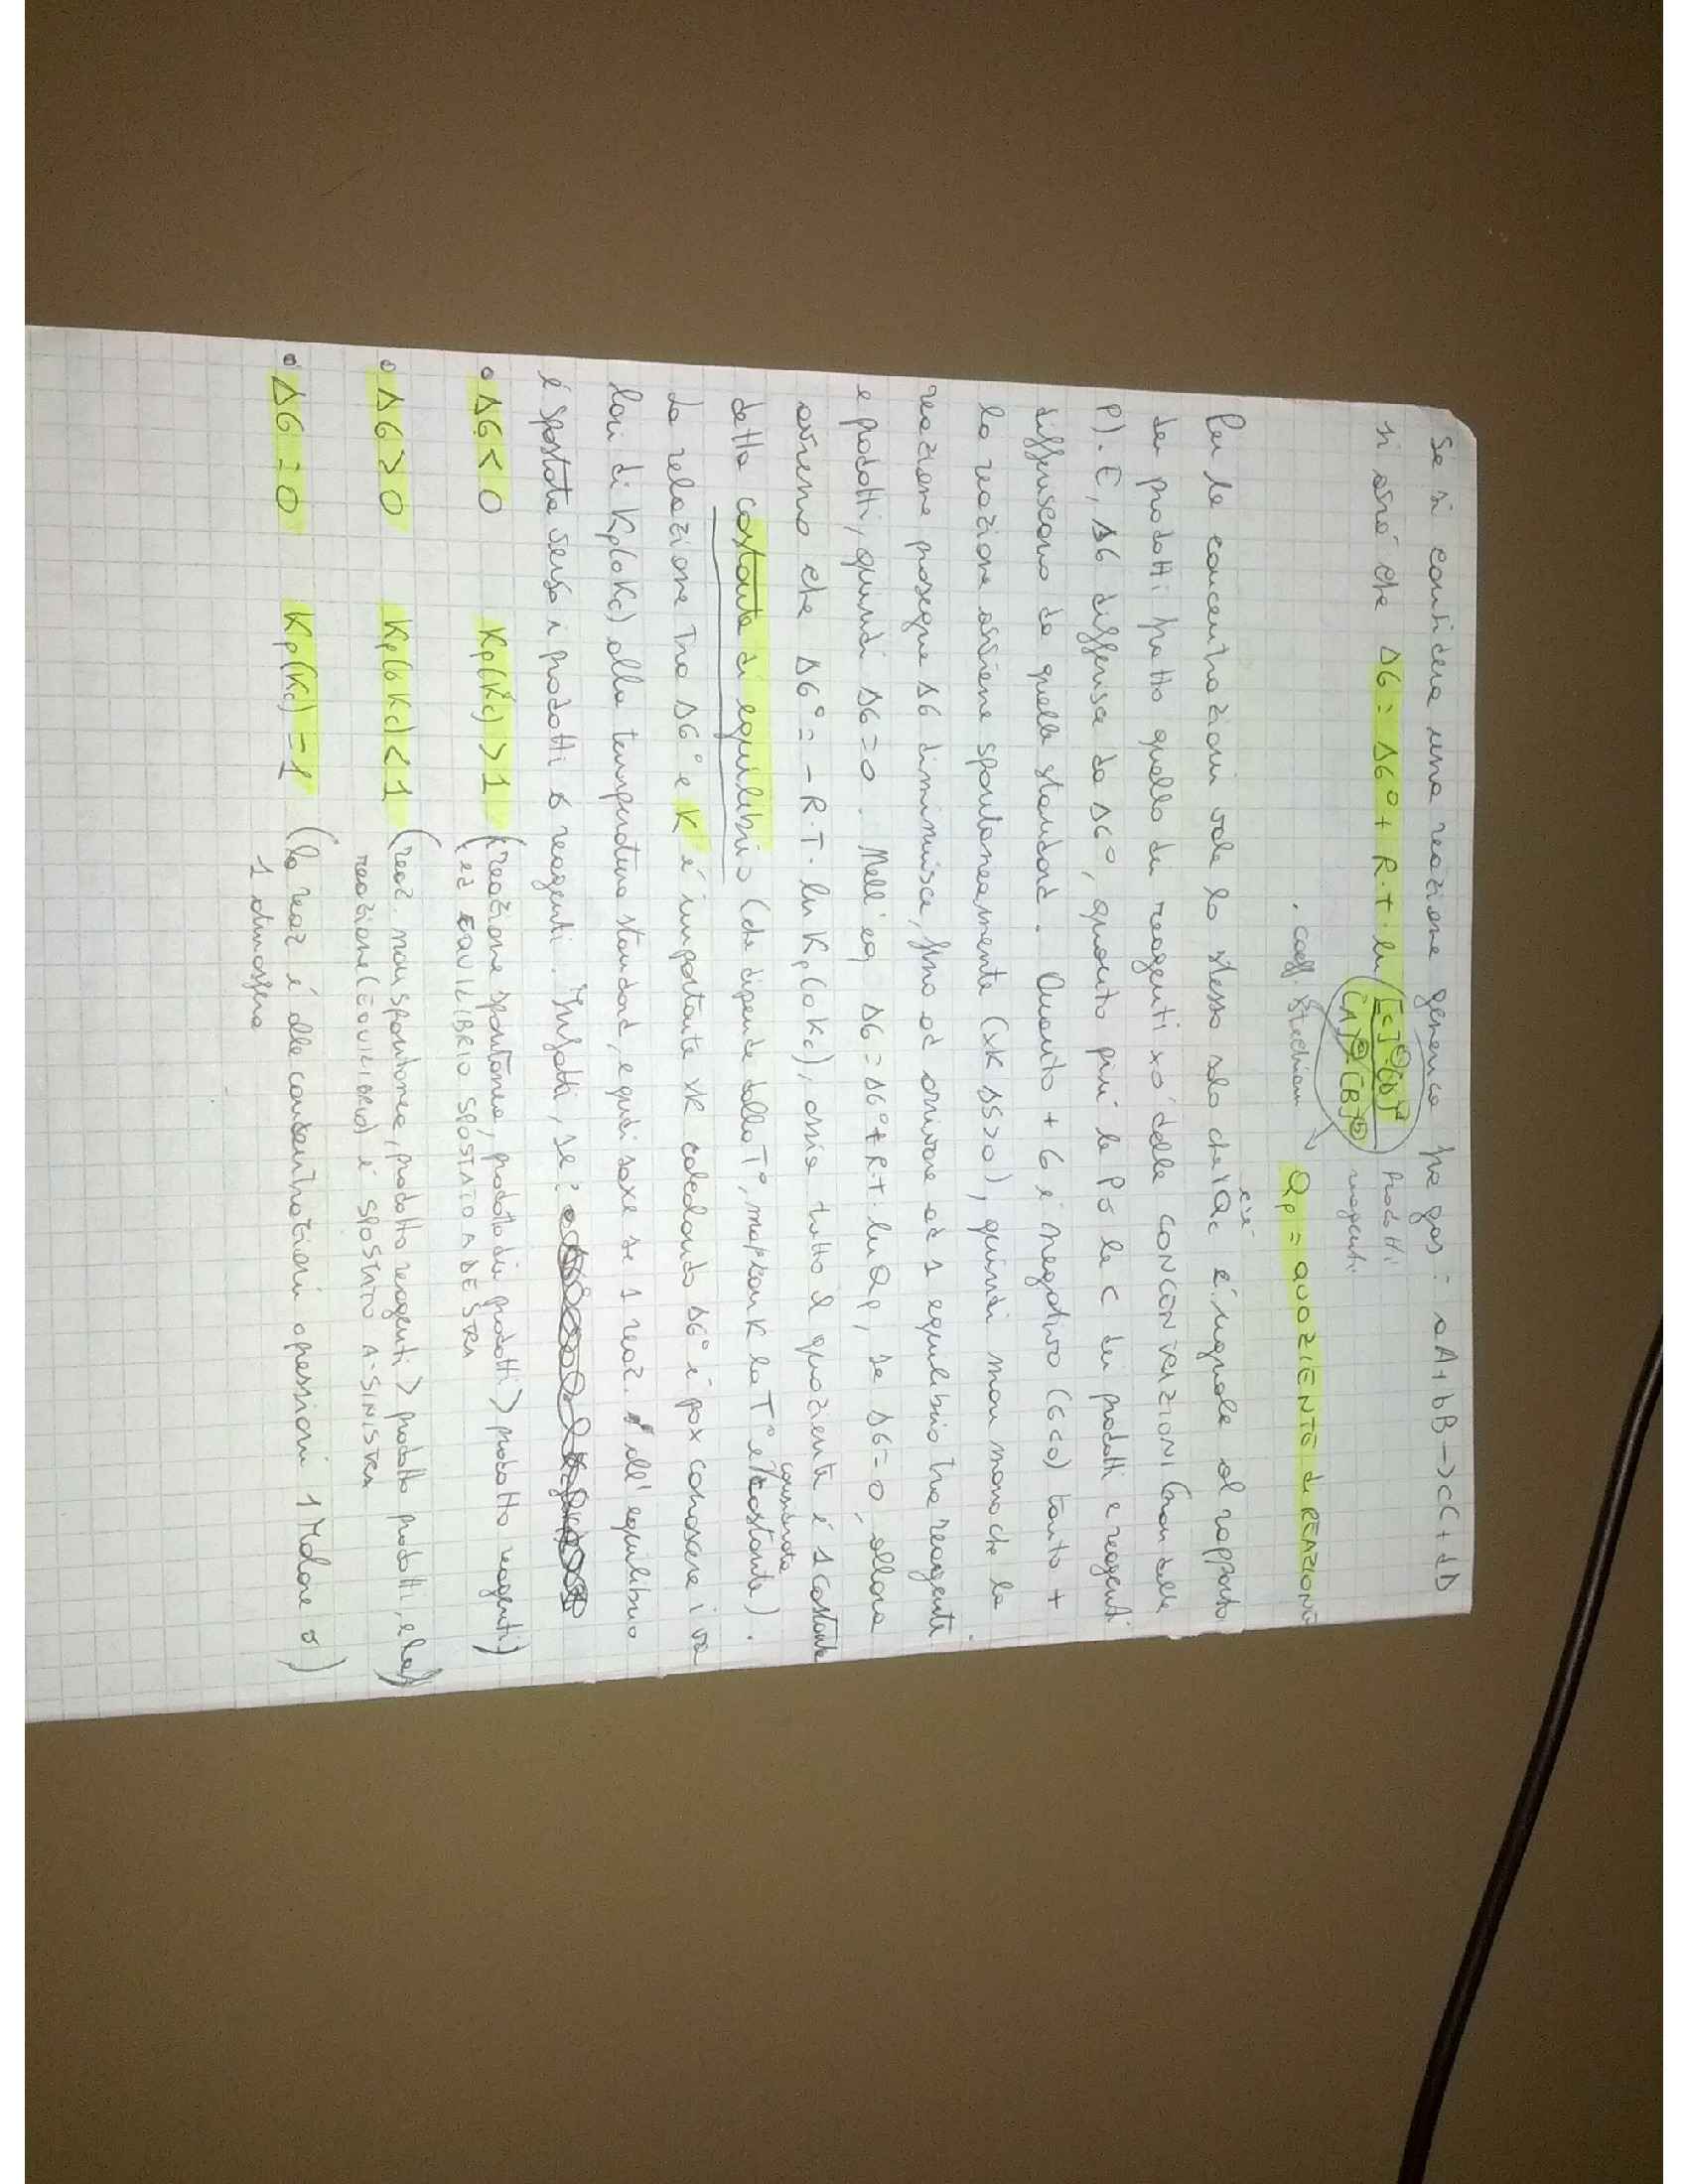 Se si considera una reazione generica fra gas: aA+bB→cC+dD
si avrà che ΔG = ΔG° + R·T·ln ([C]ᶜ·[D]ᵈ / [A]ᵃ·[B]ᵇ) prodotti reagenti
coeff. stechiom → Qp = QUOZIENTE di REAZIONE
Per le concentrazioni vale lo stesso solo che c'è Qc e' uguale al rapporto
dei prodotti fratto quello dei reagenti xò delle CONCENTRAZIONI (non delle
P). E, ΔG differisce da ΔG°, quanto più le P o le C dei prodotti e reagenti
differiscono da quelle standard. Quanto + G è negativo (G<0) tanto +
la reazione avviene spontaneamente (xk ΔS>0), quindi man mano che la
reazione prosegue ΔG diminuisce, fino ad arrivare ad 1 equilibrio tra reagenti
e prodotti, quindi ΔG=0. Nell'eq ΔG=ΔG°+R·T·lnQp, se ΔG=0, allora
avremo che ΔG° = -R·T·ln Kp(o Kc), ossia tutto il quoziente è 1 costante
detta costante di equilibrio (che dipende dalla T°, ma xk la T° è costante).
La relazione tra ΔG° e K è importante xk calcolando ΔG° è pox conoscere i va
lori di Kp(o Kc) alla temperatura standard, e quindi saxe se 1 reaz. all'equilibrio
è spostata verso i prodotti o reagenti. Infatti, se:
• ΔG < 0 Kp(Kc) > 1 (reazione spontanea, prodotto dei prodotti > prodotto reagenti)
(ed EQUILIBRIO SPOSTATO A DESTRA
• ΔG > 0 Kp(o Kc) < 1 (reaz. non spontanea, prodotto reagenti > prodotto prodotti, e la)
reazione (EQUILIBRIO) è SPOSTATO A SINISTRA
• ΔG = 0 Kp(Kc) = 1 (la reaz è alle concentrazioni o pressioni 1 Molare o)
1 atmosfera